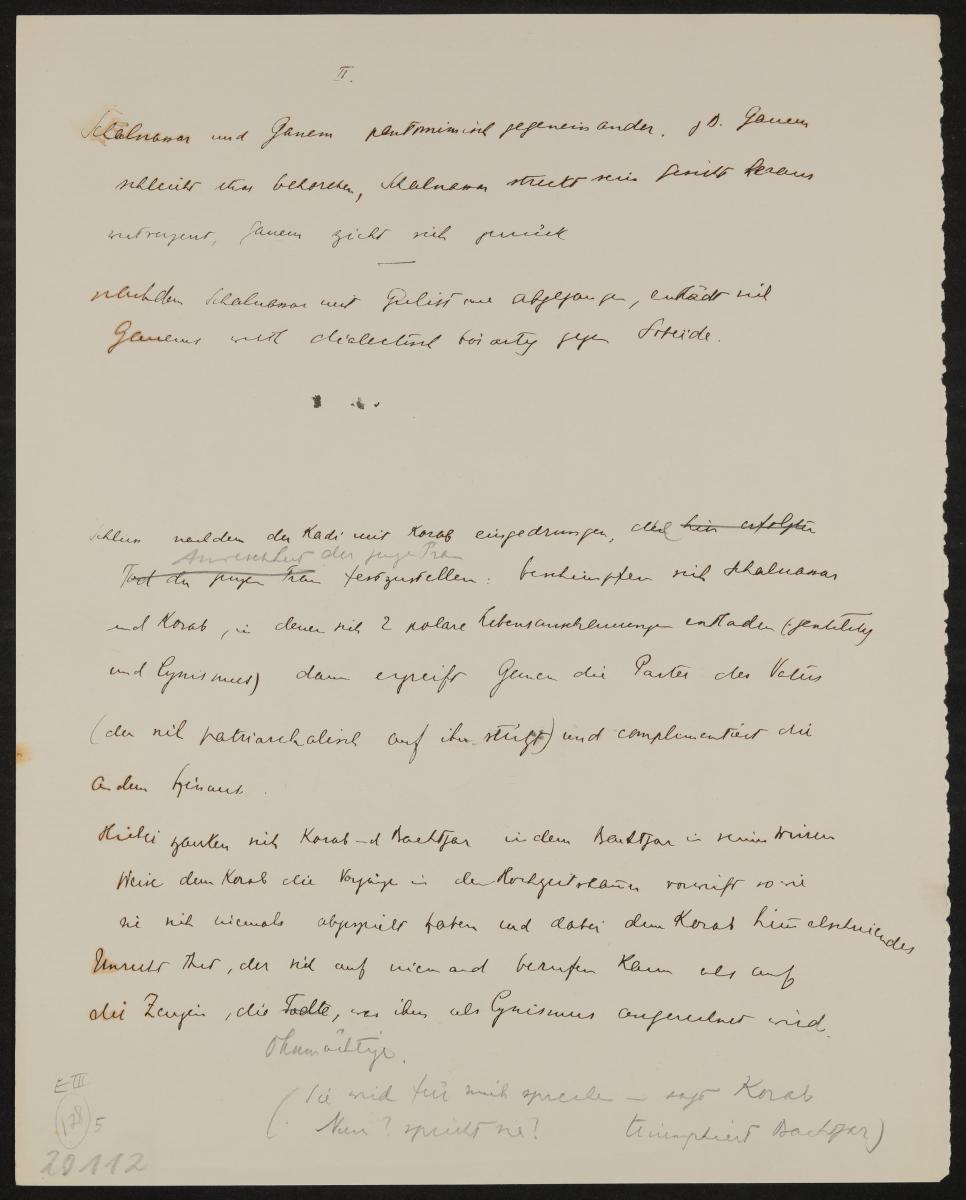 II.
Schalnassar und Ganem pantomimisch gegeneinander. z B. Ganem
schleicht etwas behorchen, Schalnassar streckt sein Gesicht heraus
wutragend, Ganem zieht sich zurück
nachdem Schalnassar mit Gülistane abgegangen, entlädt sich
Ganems Wuth dialectisch bösartig gegen Sobeide.
Schluss nachdem der Kadi mit Korab eingedrungen, den hier erfolgten
Anwesenheit der jungen Frau
Tod der jungen Frau festzustellen: beschimpfen sich Schalnassar
und Korab, in denen sich 2 polare Lebensanschauungen entladen (gentility
und Cynismus) dann ergreift Ganem die Partei des Vaters
(der sich patriarchalisch auf ihn stützt) und complimentiert die
andern hinaus.
Hiebei zanken sich Korab und Bachtjar indem Bachtjar in seiner
Weise dem Korab die Vorgänge in der Hochzeitskammer vorwirft sowie
sie sich niemals abgespielt haben und dabei dem Korab himmelschreiendes
Unrecht thut, der sich auf niemand berufen kann als auf
die Zeugin, die Todte, was ihm als Cynismus angerechnet wird.
Ohnmächtige.
(Sie wird für mich sprechen – sagt Korab
Nun? spricht sie? triumphiert Bachtjar)
E III
128 5
20112